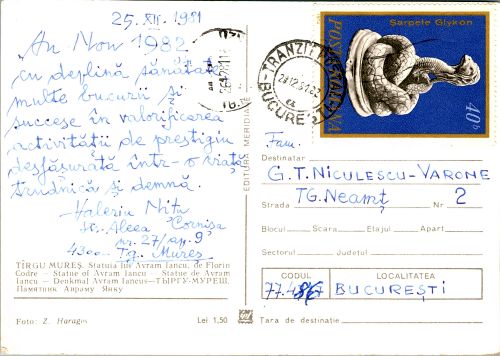 25.XII.1981
"An Nou 1982
cu deplină sănătate
multe bucurii și
succese în valorificarea
activității de prestigiu
desfășurată într-o viață
trudnică și demnă.
Valeriu Nitu
Str. Aleea "Cornișa
nr. 27/ap. 9
4300 Tg. Mureș
TÎRGU MUREȘ. Statuia lui Avram Iancu, de Florin
Codre – Statue of Avram Iancu – Statue de Avram
Iancu – Denkmal Avram Iancus – ТЫРГУ-МУРЕШ.
Памятник Авраму Янку
Foto: Z. Haragos
Lei 1,50
EDITURA MERIDIANE
TRANZIT
BUCUREȘTI
Șarpele Glykon
POSTA ROMANA
40 b
Fam.
Destinatar
G. T. NICULESCU-VARONE
Strada TG. Neamț Nr 2
Blocul Scara Etajul Apart.
Sectorul Județul
CODUL LOCALITATEA
BUCUREȘTI
Tara de destinație